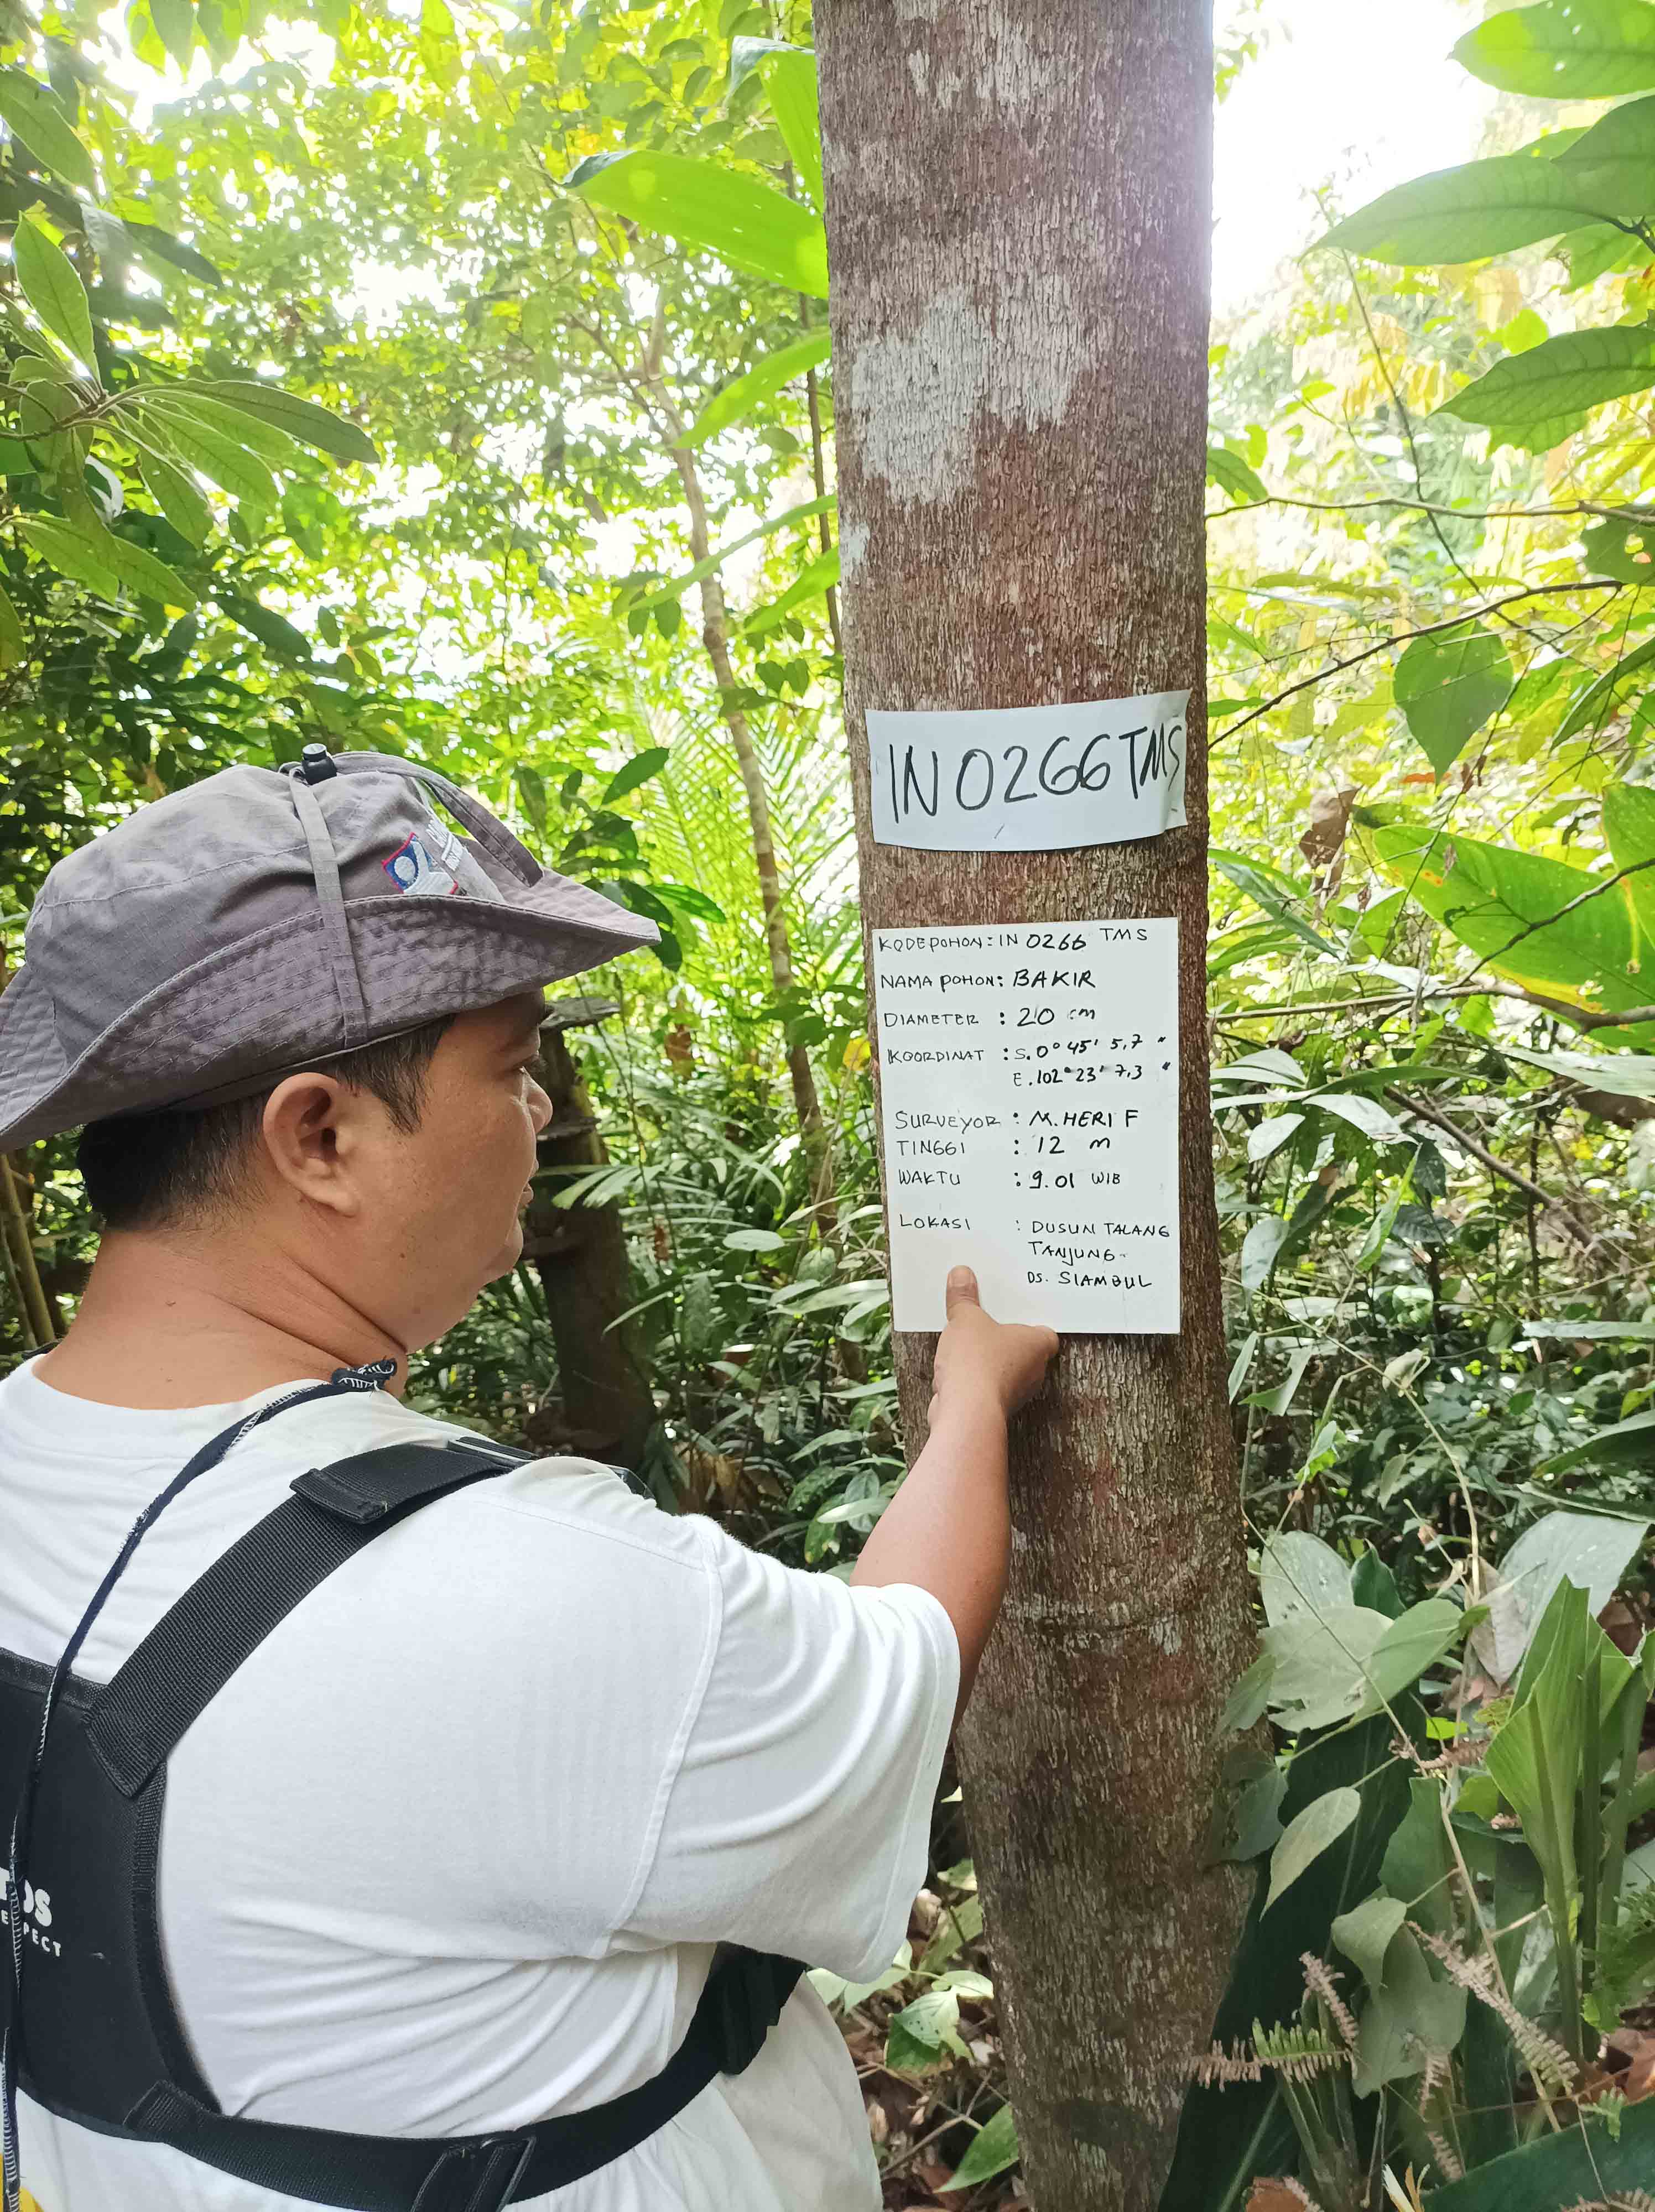 IN 0266 TMS
KODE POHON : IN 0266 TMS
NAMA POHON : BAKIR
DIAMETER : 20 cm
KOORDINAT : S. 0° 45' 5,7 "
E. 102° 23' 7,3 "
SURVEYOR : M. HERI F
TINGGI : 12 m
WAKTU : 9.01 WIB
LOKASI : DUSUN TALANG
TANJUNG -
DS. SIAMBUL